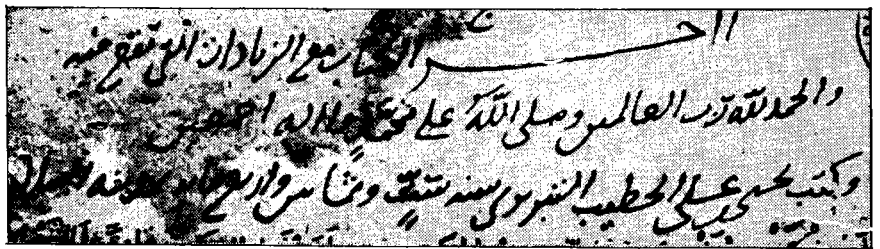 اخر الكتاب مع الزيادات التي تقع
والحمد لله رب العالمين وصلى الله على محمد واله اجمعين
وكتب يحيى بن علي الخطيب التبريزي سنه ست وثمانين واربع مايه